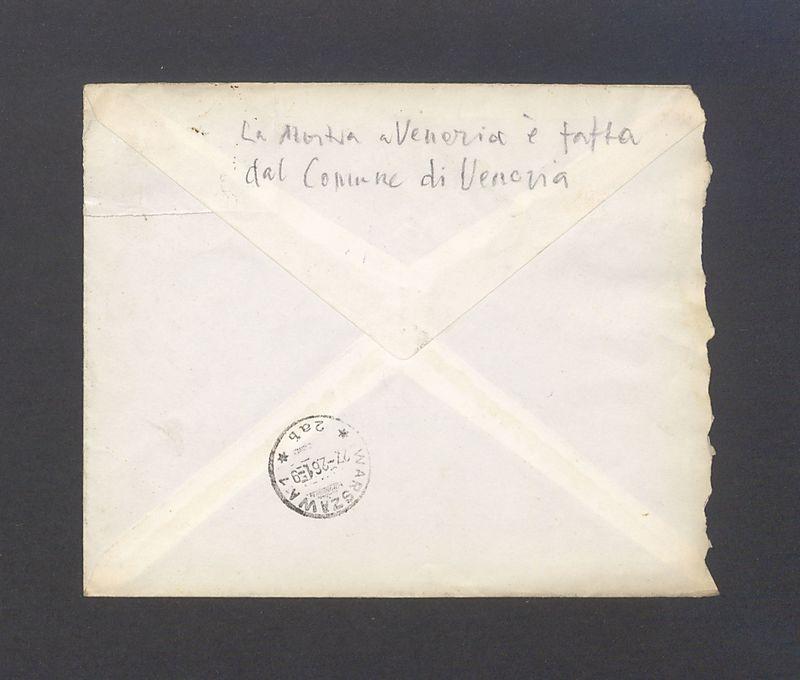 La Mostra a Venezia è fatta
dal Comune di Venezia
WARSZAWA 1
* 2ab *